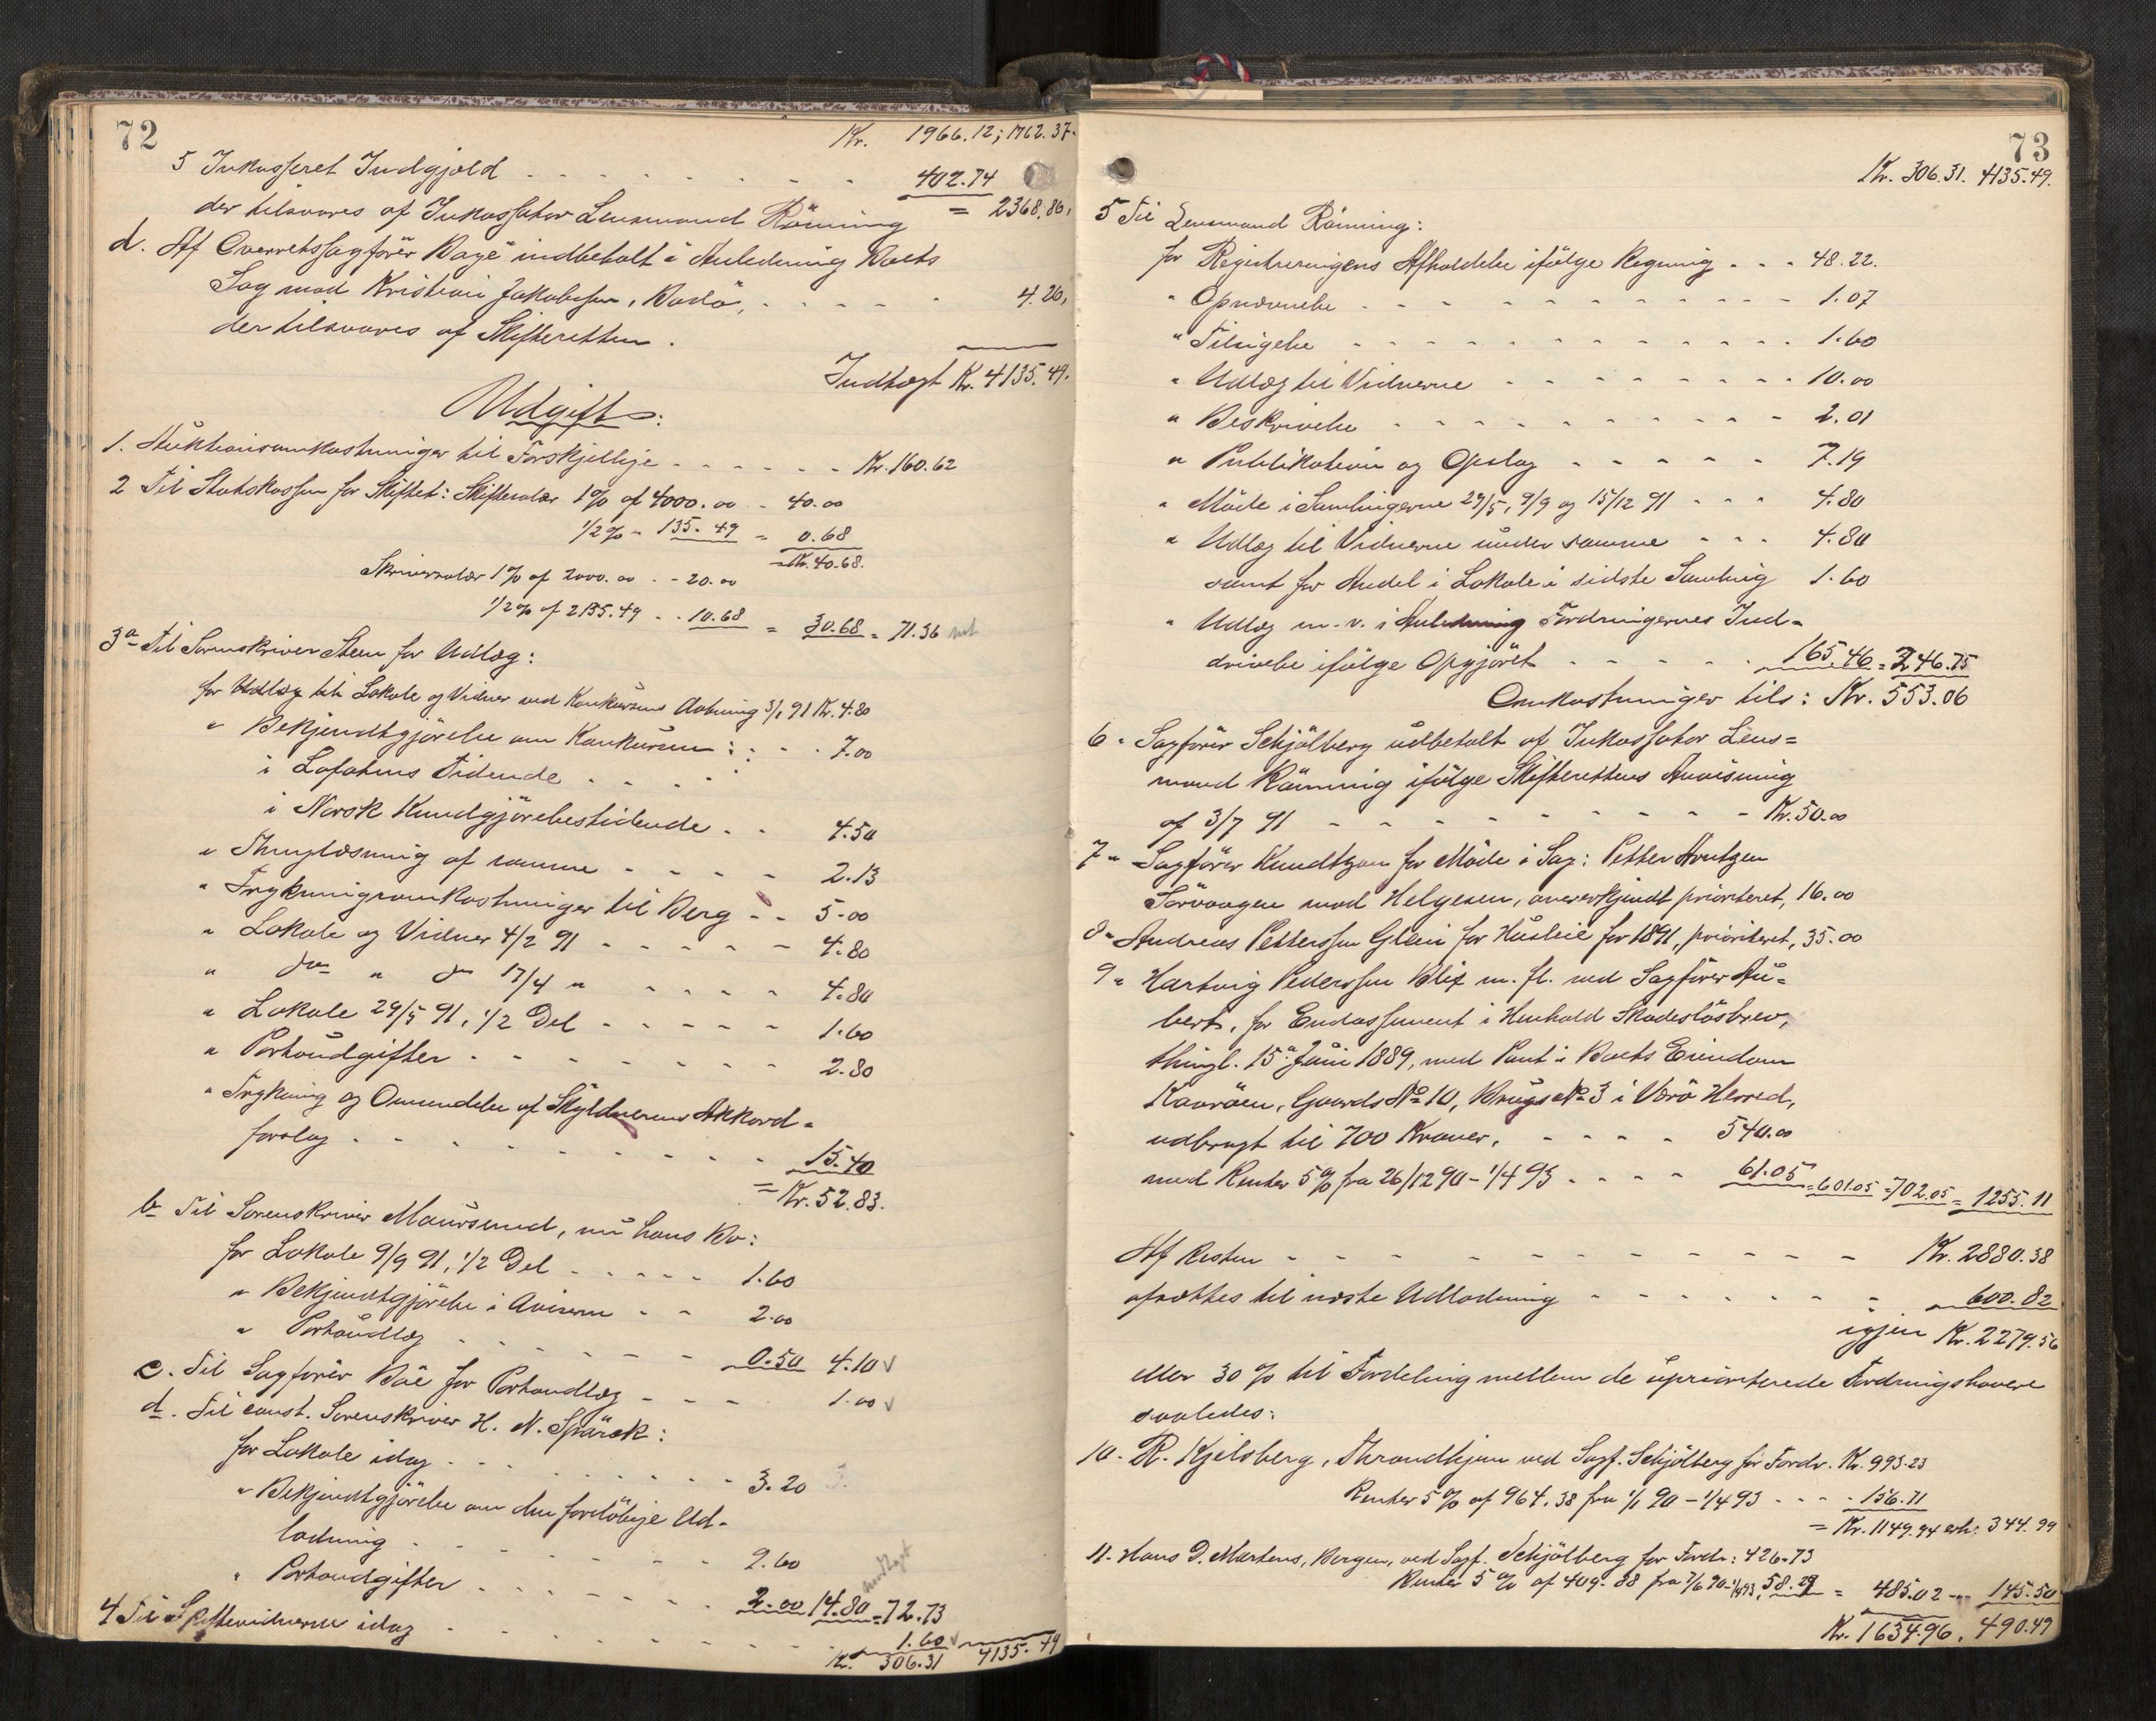 72
Kr. 1966.12; 1762.37.
5 Inkasseret Indgjæld - - - - - - - 402.74
der tilsvares af Inkassator Lensmand Rönning = 2368.86,
d. Af Overretssagförer Bagë indbetalt i Anledning Boets
Sag mod Kristian Jakobsen, Bodö, - - - - - 4.26,
der tilsvares af Skifteretten.
Indtægt Kr. 4135.49.
Udgift:
1. Auktionsomkostninger til Forskjellige - - - - - - Kr. 160.62
2 Til Statskassen for Skiftet: Skiftesalær 1% af 4000.00 - 40.00
1/2% " 135.49 = 0.68
= Kr. 40.68.
Skriversalær 1% af 2000.00 - - 20.00
1/2% af 2135.49 - - 10.68 = 30.68 = 71.36
3a Til Sorenskriver Steen for Udlæg:
for Udlæg til Lokale og Vidner ved Konkursens Aabning 3/1 91 Kr. 4.80
" Bekjendtgjörelse om Konkursen: - - - 7.00
i Lofotens Tidende - - - -
i Norsk Kundgjörelsestidende - - 4.50
" Thinglæsning af samme - - - - - 2.13
" Trykningsomkostninger til Berg - - 5.00
" Lokale og Vidner 4/2 91 - - - - - 4.80
" do " do 17/4 " - - - - - 4.80
" Lokale 29/5 91, 1/2 Del - - - - - 1.60
" Portoudgifter - - - - - - - 2.80
" Trykning og Omsendelse af Skyldnerens Akkord-
forslag - - - - - - - - - 15.40
= Kr. 52.83.
b Til Sorenskriver Maursund, nu hans Bo:
for Lokale 9/9 91, 1/2 Del - - - - - 1.60
" Bekjendtgjörelse i Aviserne - - 2.00
" Portoudlæg - - - - - - 0.50 4.10
c. Til Sagförer Böe for Portoudlæg - - - 1.00
d. Til const. Sorenskriver H. N. Spärck:
for Lokale idag - - - - - - - - - 3.20
" Bekjendtgjörelse om den forelöbige Ud-
lodning - - - - - - - - 9.60
" Portoudgifter - - - - - - - 2.00 14.80 = 72.73
4 Til Skiftevidnerne idag - - - - - - - - - 1.60
Kr. 306.31 4135.49
73
Kr. 306.31. 4135.49.
5 Til Lensmand Rönning:
for Registreringens Afholdelse ifölge Regning - - - 48.22.
" Opnævnelse - - - - - - - - - - - - 1.07
" Tilsigelse - - - - - - - - - - - - - 1.60
" Udlæg til Vidnerne - - - - - - - - 10.00
" Beskrivelse - - - - - - - - - - 2.01
" Publikation og Opslag - - - - - 7.19
" Möde i Samlingerne 29/5, 9/9 og 15/12 91 - - - 4.80
" Udlæg til Vidnerne under samme - - - 4.80
samt for Andel i Lokale i sidste Samling 1.60
" Udlæg m.v. i Anledning Fordringernes Ind-
drivelse ifölge Opgjöret - - - - - 165.46 = 246.75
Omkostninger tils: Kr. 553.06
6 " Sagförer Schjölberg udbetalt af Inkassator Lens=
mand Rönning ifölge Skifterettens Anvisning
af 3/7 91 - - - - - - - - - - - - Kr. 50.00
7 " Sagförer Knudtzon for Möde i Sag: Petter Arntzen
Sörvaagen mod Helgesen, anerkjendt prioriteret, 16.00
8 " Andreas Petterssen Glein for Husleie for 1891, prioriteret, 35.00
9 " Hartvig Pederssen Blix m.fl. ved Sagförer Au-
bert, for Endossement i Henhold Skadeslösbrev,
thingl. 15de Juni 1889, med Pant i Boets Eiendom
Kavröen, Gaards No 10, Brugs No 3 i Værö Herred,
udbragt til 700 Kroner, - - - - - 540.00
med Renter 5% fra 26/12 90 - 1/4 93 - - - - 61.05 = 601.05 = 702.05 = 1255.11
Af Resten - - - - - - - - - - - - - Kr. 2880.38
afsættes til næste Udlodning - - - - - - - 600.82
igjen Kr. 2279.56
eller 30% til Fordeling mellem de uprioriterede Fordringshavere
saaledes:
10. R. Kjelsberg, Throndhjem ved Sagf. Schjölberg for Fordr. Kr. 993.23
Renter 5% af 964.38 fra 1/1 90 - 1/4 93 - - - - 156.71
= Kr. 1149.94 erh: 344.99
11. Hans D. Martens, Bergen, ved Sagf. Schjölberg for Fordr: 426.73
Renter 5% af 409.88 fra 7/6 90 - 1/4 93, 58.29 = 485.02 - " 145.50
Kr. 1634.96. 490.49